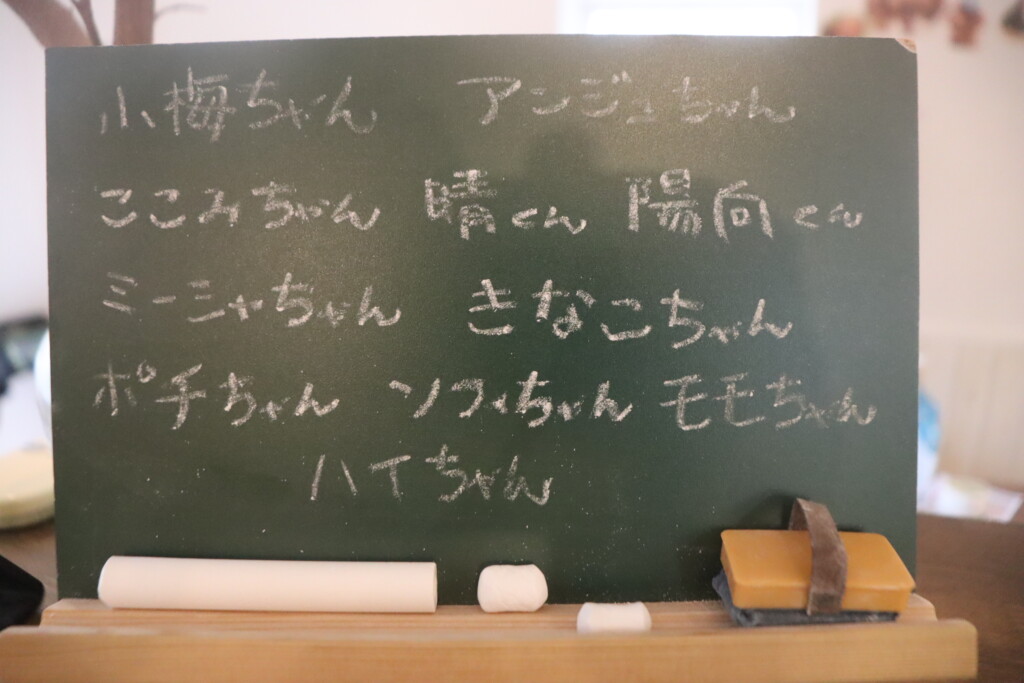 小梅ちゃん アンジュちゃん
ここみちゃん 晴くん 陽向くん
ミーシャちゃん きなこちゃん
ポチちゃん ソフィちゃん モモちゃん
ハイちゃん